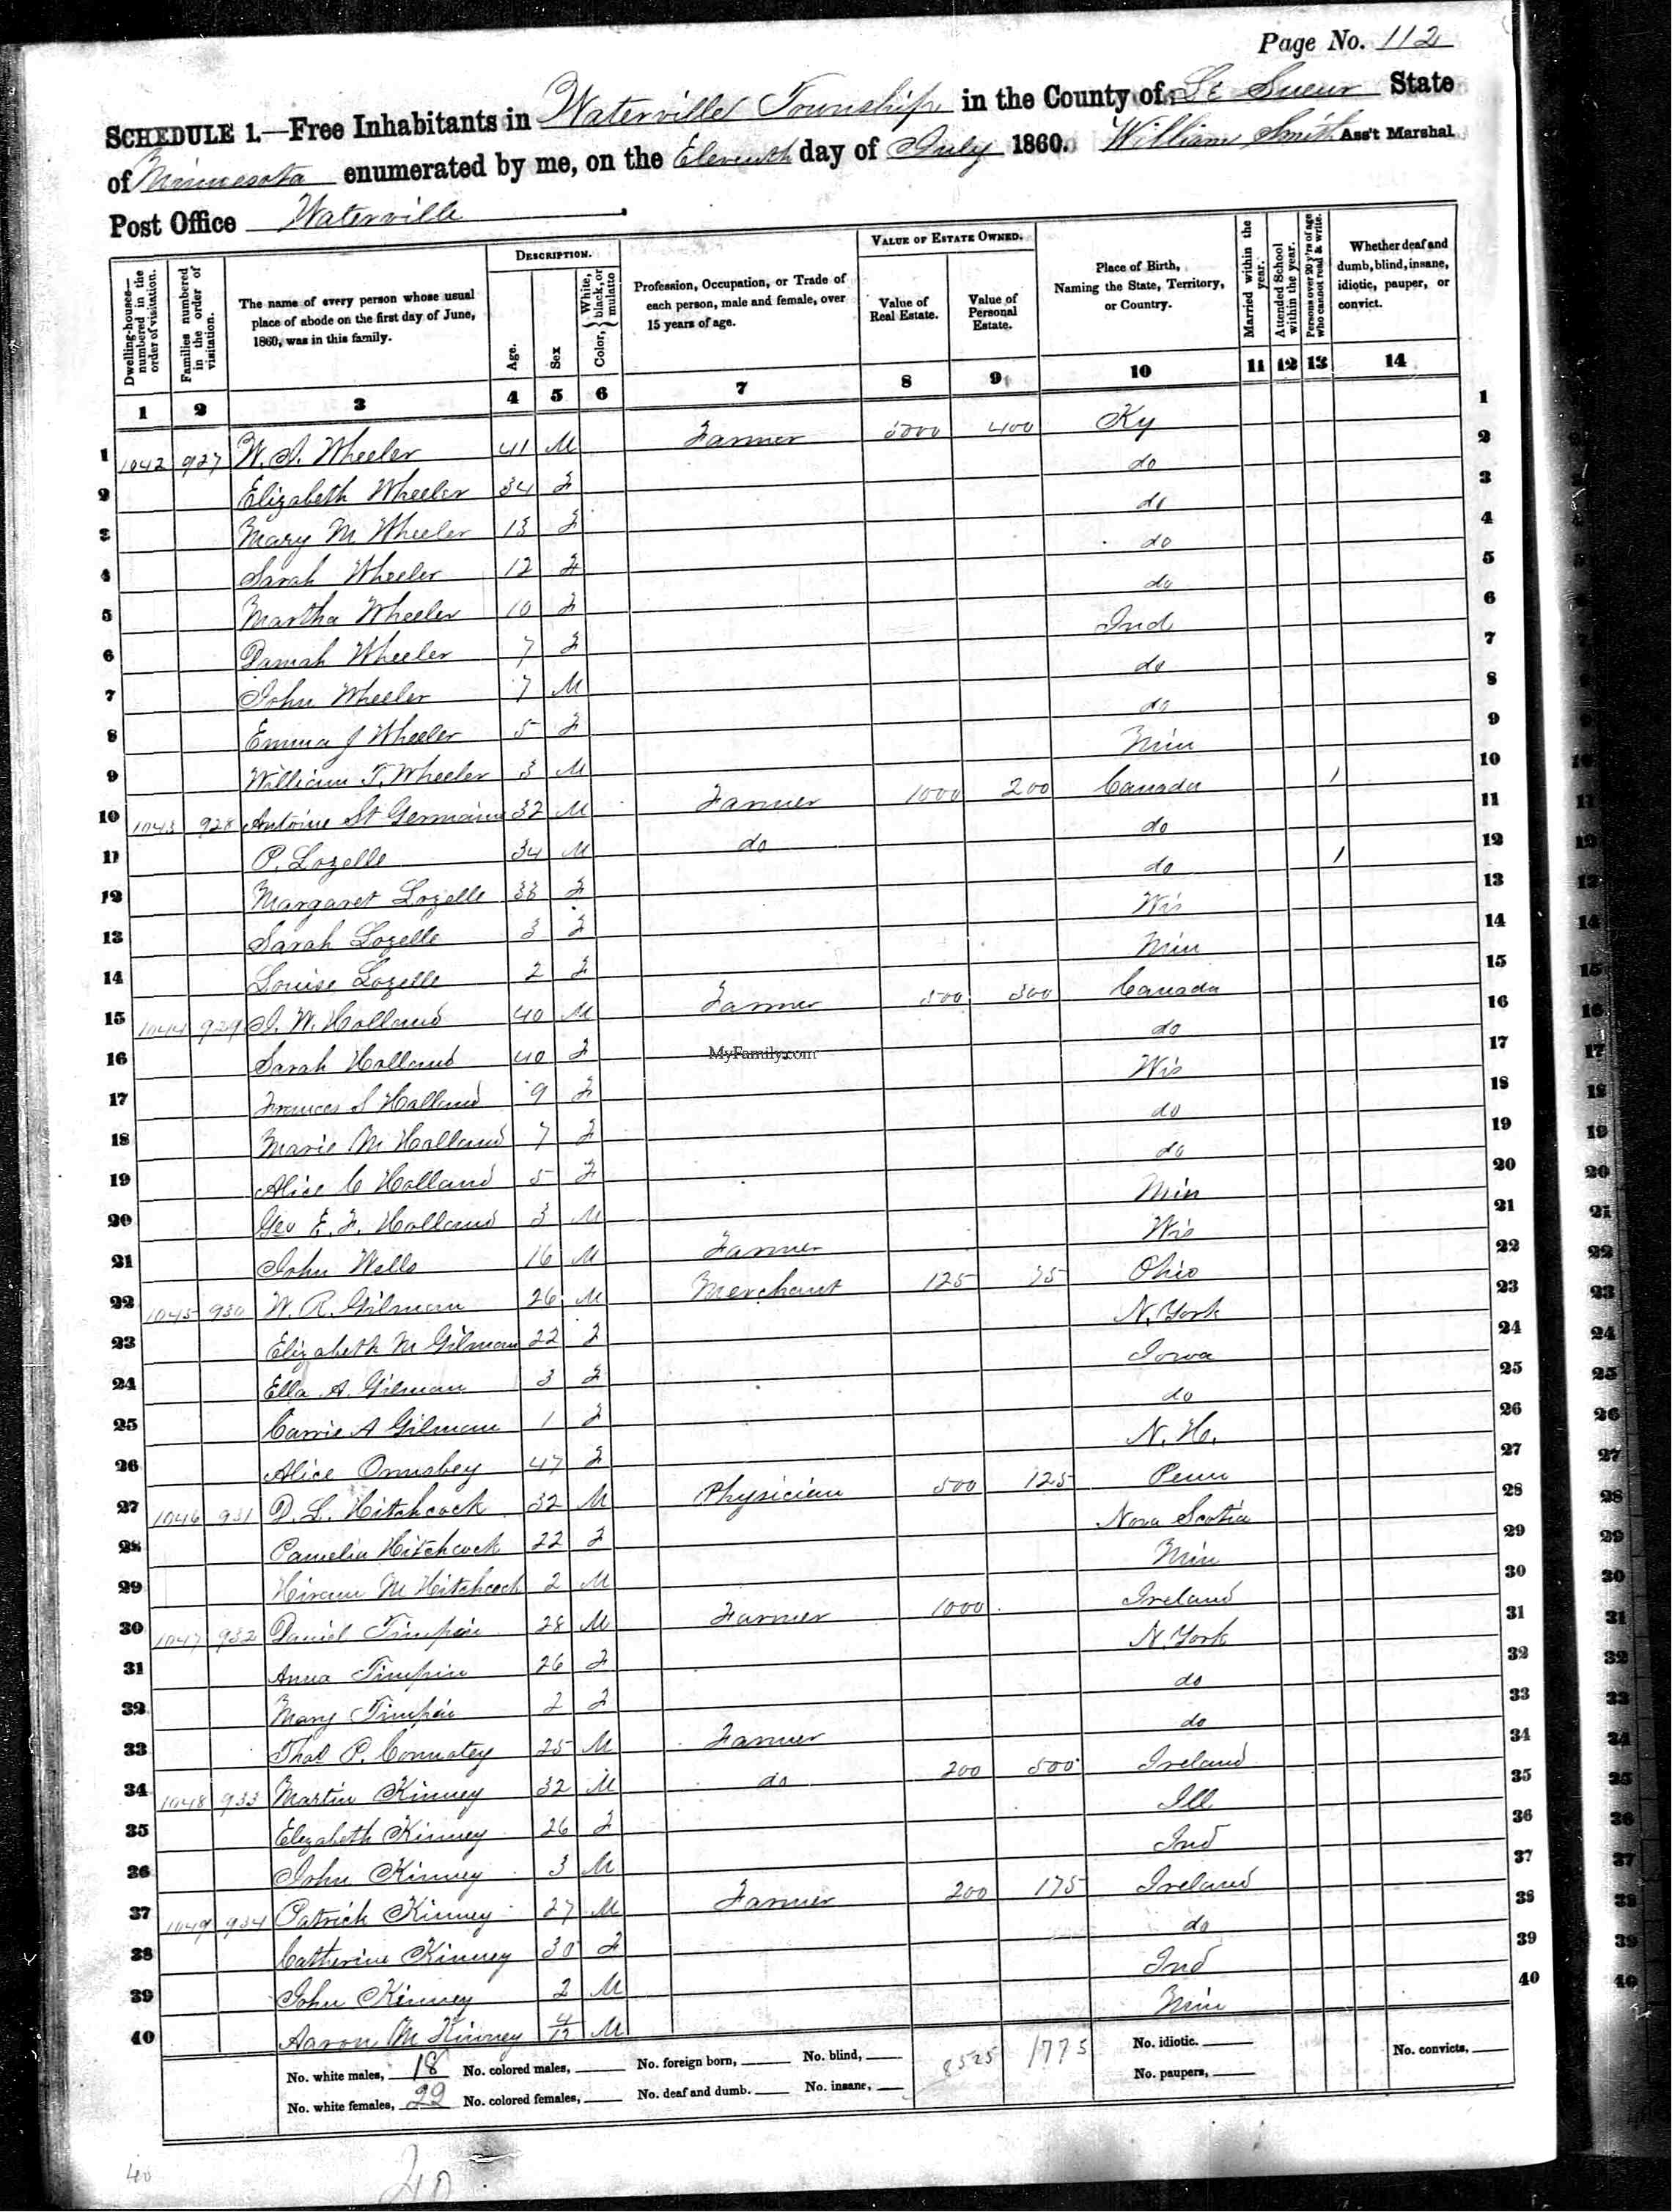 Page No. 112
SCHEDULE 1.—Free Inhabitants in Waterville Township in the County of Le Sueur State
of Minnesota enumerated by me, on the Eleventh day of July 1860. William Smith Ass't Marshal
Post Office Waterville
Dwelling-houses—numbered in the order of visitation.
Families numbered in the order of visitation.
The name of every person whose usual place of abode on the first day of June, 1860, was in this family.
DESCRIPTION.
Age.
Sex
Color, { White, black, or mulatto
Profession, Occupation, or Trade of each person, male and female, over 15 years of age.
VALUE OF ESTATE OWNED.
Value of Real Estate.
Value of Personal Estate.
Place of Birth, Naming the State, Territory, or Country.
Married within the year.
Attended School within the year.
Persons over 20 y'rs of age who cannot read & write.
Whether deaf and dumb, blind, insane, idiotic, pauper, or convict.
1 2 3 4 5 6 7 8 9 10 11 12 13 14
1 1042 927 Wheeler 41 M Farmer 400 Ky 1
2 Elizabeth Wheeler 34 F do 2
3 Mary M Wheeler 13 F do 3
4 Sarah Wheeler 12 F do 4
5 Martha Wheeler 10 F do 5
6 Wheeler 7 F Ind 6
7 John Wheeler 7 M do 7
8 Emma J Wheeler 5 F do 8
9 William T. Wheeler 3 M Min 9
10 1043 928 Antoine St Germaine 32 M Farmer 1000 200 Canada 1 10
11 P. Lozelle 34 M do do 11
12 Margaret Lozelle 33 F do 1 12
13 Sarah Lozelle 3 F Wis 13
14 Louise Lozelle 2 F Min 14
15 1044 929 W. Holland 40 M Farmer 500 300 Canada 15
16 Sarah Holland 40 F do 16
MyFamily.com
17 Frances S Holland 9 F Wis 17
18 Marie M Holland 7 F do 18
19 Alice C Holland 5 F do 19
20 Geo E. F. Holland 3 M Min 20
21 John Wells 16 M Farmer Wis 21
22 1045 930 W. R. Gilman 26 M Merchant 125 75 Ohio 22
23 Elizabeth M Gilman 22 F N. York 23
24 Ella A. Gilman 3 F Iowa 24
25 Carrie A Gilman 1 F do 25
26 Alice Ormsbey 47 F N. H. 26
27 1046 931 D. L. Hitchcock 32 M Physician 500 125 Penn 27
28 Pamelia Hitchcock 22 F Nova Scotia 28
29 Hiram M Hitchcock 2 M Min 29
30 1047 932 Daniel Timpin 28 M Farmer 1000 Ireland 30
31 Anna Timpin 26 F N. York 31
32 Mary Timpin 2 F do 32
33 P. 25 M Farmer do 33
34 1048 933 Martin Kinney 32 M do 200 500 Ireland 34
35 Elizabeth Kinney 26 F Ill 35
36 John Kinney 3 M Ind 36
37 1049 934 Patrick Kinney 27 M Farmer 200 175 Ireland 37
38 Catherine Kinney 30 F do 38
39 John Kinney 2 M Ind 39
40 Aaron M Kinney 4/12 M Min 40
No. white males, 18 No. colored males, No. foreign born, No. blind, 8525 1775 No. idiotic. No. convicts,
No. white females, 22 No. colored females, No. deaf and dumb. No. insane, No. paupers,
40
40